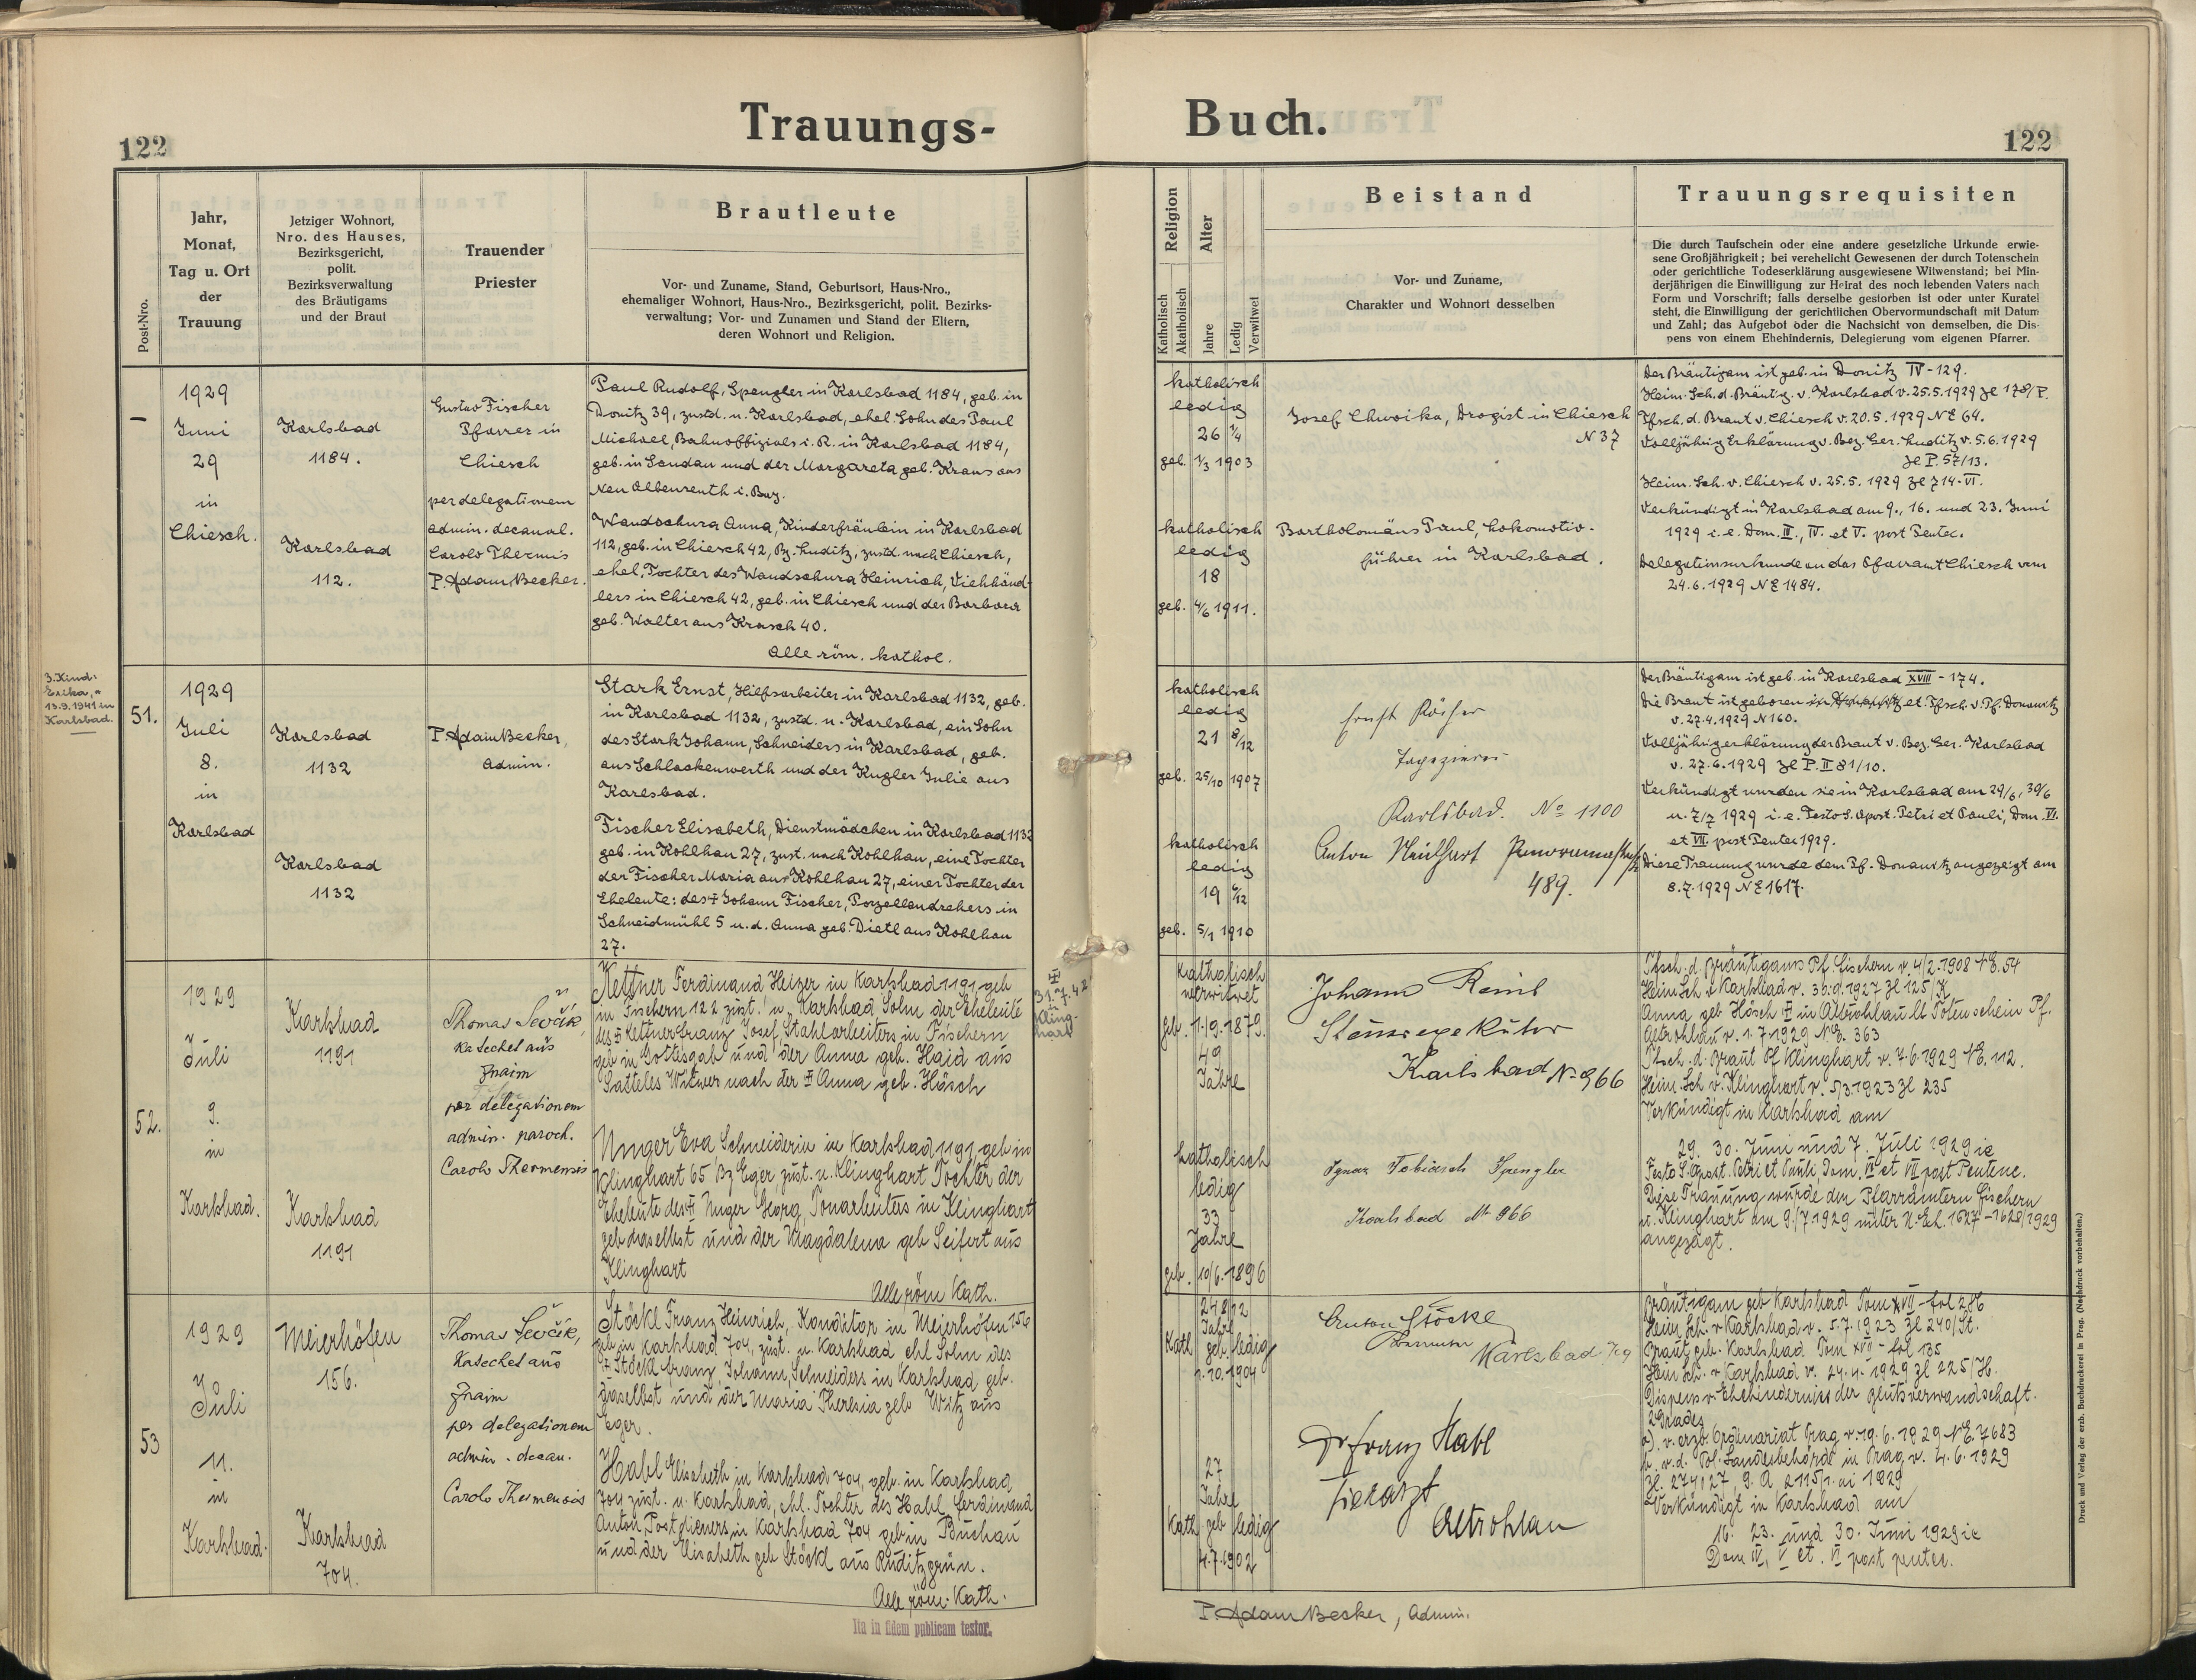 Trauungs-
Buch.
122
122
Post-Nro.
Jahr,
Monat,
Tag u. Ort
der
Trauung
Jetziger Wohnort,
Nro. des Hauses,
Bezirksgericht,
polit.
Bezirksverwaltung
des Bräutigams
und der Braut
Trauender
Priester
Brautleute
Vor- und Zuname, Stand, Geburtsort, Haus-Nro.,
ehemaliger Wohnort, Haus-Nro., Bezirksgericht, polit. Bezirks-
verwaltung; Vor- und Zunamen und Stand der Eltern,
deren Wohnort und Religion.
Religion
Katholisch
Akatholisch
Alter
Jahre
Ledig
Verwitwet
Beistand
Vor- und Zuname,
Charakter und Wohnort desselben
Trauungsrequisiten
Die durch Taufschein oder eine andere gesetzliche Urkunde erwie-
sene Großjährigkeit; bei verehelicht Gewesenen der durch Totenschein
oder gerichtliche Todeserklärung ausgewiesene Witwenstand; bei Min-
derjährigen die Einwilligung zur Heirat des noch lebenden Vaters nach
Form und Vorschrift; falls derselbe gestorben ist oder unter Kuratel
steht, die Einwilligung der gerichtlichen Obervormundschaft mit Datum
und Zahl; das Aufgebot oder die Nachsicht von demselben, die Dis-
pens von einem Ehehindernis, Delegierung vom eigenen Pfarrer.
–
1929
Juni
29
in
Chiesch.
Karlsbad
1184.
Karlsbad
112.
Gustav Fischer
Pfarrer in
Chiesch
per delegationem
admin. decanal.
Carolo Thermis
P. Adam Becker.
Paul Rudolf, Spengler in Karlsbad 1184, geb. in
Donitz 39, zustd. n. Karlsbad, ehel. Sohn des Paul
Michael, Bahnoffizials i. R. in Karlsbad 1184,
geb. in Sandau und der Margareta geb. Kraus aus
Neu Albenreuth i. Bay.
Wandschura Anna, Kinderfräulein in Karlsbad
112, geb. in Chiesch 42, Bz. Luditz, zustd. nach Chiesch,
ehel. Tochter des Wandschura Heinrich, Viehhänd-
lers in Chiesch 42, geb. in Chiesch und der Barbara
geb. Walter aus Krasch 40.
Alle röm. kathol.
katholisch
ledig
26 1/4
geb. 1/3 1903
katholisch
ledig
18
geb. 4/6 1911.
Josef Chwoika, Drogist in Chiesch
N 37
Bartholomäus Paul, Lokomotiv-
führer in Karlsbad.
Der Bräutigam ist geb. in Donitz IV - 129.
Heim. Sch. d. Bräutig. v. Karlsbad v. 25.5.1929 Zl 178/P.
Tfsch. d. Braut v. Chiesch v. 20.5.1929 NE 64.
Volljährig Erklärung v. Bez. Ger. Luditz v. 5.6.1929
Zl P. 57/13.
Heim. Sch. v. Chiesch v. 25.5.1929 Zl 714-VI.
Verkündigt in Karlsbad am 9., 16. und 23. Juni
1929 i. e. Dom. III., IV. et V. post Pentec.
Delegationsurkunde an das Pfarramt Chiesch vom
24.6.1929 NE 1484.
3. Kind:
Erika, *
13.9.1941 in
Karlsbad.
51.
1929
Juli
8.
in
Karlsbad
Karlsbad
1132
Karlsbad
1132
P. Adam Becker,
Admin.
Stark Ernst, Hilfsarbeiter in Karlsbad 1132, geb.
in Karlsbad 1132, zustd. n. Karlsbad, ein Sohn
des Stark Johann, Schneiders in Karlsbad, geb.
aus Schlackenwerth und der Kugler Julie aus
Karlsbad.
Fischer Elisabeth, Dienstmädchen in Karlsbad 1132
geb. in Kohlhau 27, zust. nach Kohlhau, eine Tochter
der Fischer Maria aus Kohlhau 27, einer Tochter der
Eheleute: des † Johann Fischer, Porzellandrehers in
Schneidmühl 5 u. d. Anna geb. Dietl aus Kohlhau
27.
katholisch
ledig
21 8/12
geb. 25/10 1907
katholisch
ledig
19 6/12
geb. 5/1 1910
Ernst
Tapezierer
Karlsbad. No 1100
Anton
489.
Der Bräutigam ist geb. in Karlsbad XVIII - 174.
Die Braut ist geboren in et. Tfsch. v. Pf. Donawitz
v. 27.4.1929 N 160.
Volljährigerklärung der Braut v. Bez. Ger. Karlsbad
v. 27.6.1929 Zl P. II 81/10.
Verkündigt wurden sie in Karlsbad am 29/6, 30/6
u. 7/7 1929 i. e. Festo S. Apost. Petri et Pauli, Dom. VI.
et VII. post Pentec 1929.
Diese Trauung wurde dem Pf. Donawitz angezeigt am
8.7.1929 NE 1617.
52.
1929
Juli
9.
in
Karlsbad.
Karlsbad
1191
Karlsbad
1191
Thomas Ševčík,
Katechet aus
Znaim
per delegationem
admin. paroch.
Carolo Thermensis
Kettner Ferdinand Heizer in Karlsbad 1191 geb
in Fischern 122 zust. n. Karlsbad Sohn der Eheleute
des † Kettner Franz Josef, Stahlarbeiters in Fischern
geb in Gottesgab und der Anna geb. Haid aus
Satteles Witwer nach der † Anna geb. Hösch
Unger Eva, Schneiderin in Karlsbad 1191 geb in
Klinghart 65 Bz Eger, zust. n. Klinghart Tochter der
Eheleute des † Unger Georg, Tonarbeiters in Klinghart
geb daselbst und der Magdalena geb Seifert aus
Klinghart
Alle röm. Kath.
31.7.42
in
Kling-
hart
Katholisch
verwitwet
geb. 11.9.1879.
49
Jahre
Katholisch
ledig
33
Jahre
geb. 10/6. 1896
Johann
Steuerexekutor
Karlsbad No 966
Ignaz Tobiasch Spengler
Karlsbad No 966
Tfsch. d. Bräutigams Pf. Fischern v. 4/2. 1908 NE. 54
Heim Sch v Karlsbad v. 30.9.1927 Zl 125/K
Anna geb Hösch † in Altrohlau lt Totenschein Pf.
Altrohlau v. 1.7.1929 NE. 363
Tfsch. d. Braut Pf Klinghart v. 7.6.1929 NE. 112.
Heim. Sch v. Klinghart v. 5/3 1923 Zl 235
Verkündigt in Karlsbad am
29. 30. Juni und 7. Juli 1929 ie
Festo S. Apost. Petri et Pauli, Dom. VI et VII post Pentec.
Diese Trauung wurde den Pfarrämtern Fischern
u. Klinghart am 9./7 1929 unter N. Ex. 1627-1628/1929
angezeigt.
53
1929
Juli
11.
in
Karlsbad.
Meierhöfen
156.
Karlsbad
704.
Thomas Ševčík,
Katechet aus
Znaim
per delegationem
admin. decan.
Carolo Thermensis
Stöckl Franz Heinrich, Konditor in Meierhöfen 156
geb in Karlsbad 704, zust. n. Karlsbad ehl Sohn des
† Stöckl Franz, Johann, Schneiders in Karlsbad, geb.
daselbst und der Maria Theresia geb Witz aus
Eger.
Habl Elisabeth in Karlsbad 704, geb. in Karlsbad
704 zust. n. Karlsbad, ehl. Tochter des Habl, Ferdinand
Anton, Postdieners in Karlsbad 704 geb in Buchau
und der Elisabeth geb Stöckl aus Ruditzgrün.
Alle röm. Kath.
24 8/12
Jahre
Kath geb. ledig
1.10.1904
27
Jahre
Kath geb ledig
4.7.1902
Anton Stöckl
Karlsbad
Dr Franz Habl
Tierarzt
Altrohlau
Bräutigam geb Karlsbad Tom XVII - fol 286
Heim Sch. v Karlsbad v. 5.7.1923 Zl 240/St.
Braut geb. Karlsbad Tom XVII - fol 135
Heim Sch. v Karlsbad v. 24.4.1929 Zl 225/H.
Dispens v Ehehindernis der Blutsverwandschaft.
2 Grades
a). v. erzb. Ordinariat Prag v. 19.6.1929 NE. 7683
b. v. d. Pol. Landesbehörde in Prag v. 4.6.1929
Verkündigt in Karlsbad am
16. 23. und 30. Juni 1929 ie
Dom IV, V et. VI post pentec.
P. Adam Becker, Admin.
Ita in fidem publicam testor.
Druck und Verlag der erzb. Buchdruckerei in Prag. (Nachdruck vorbehalten.)